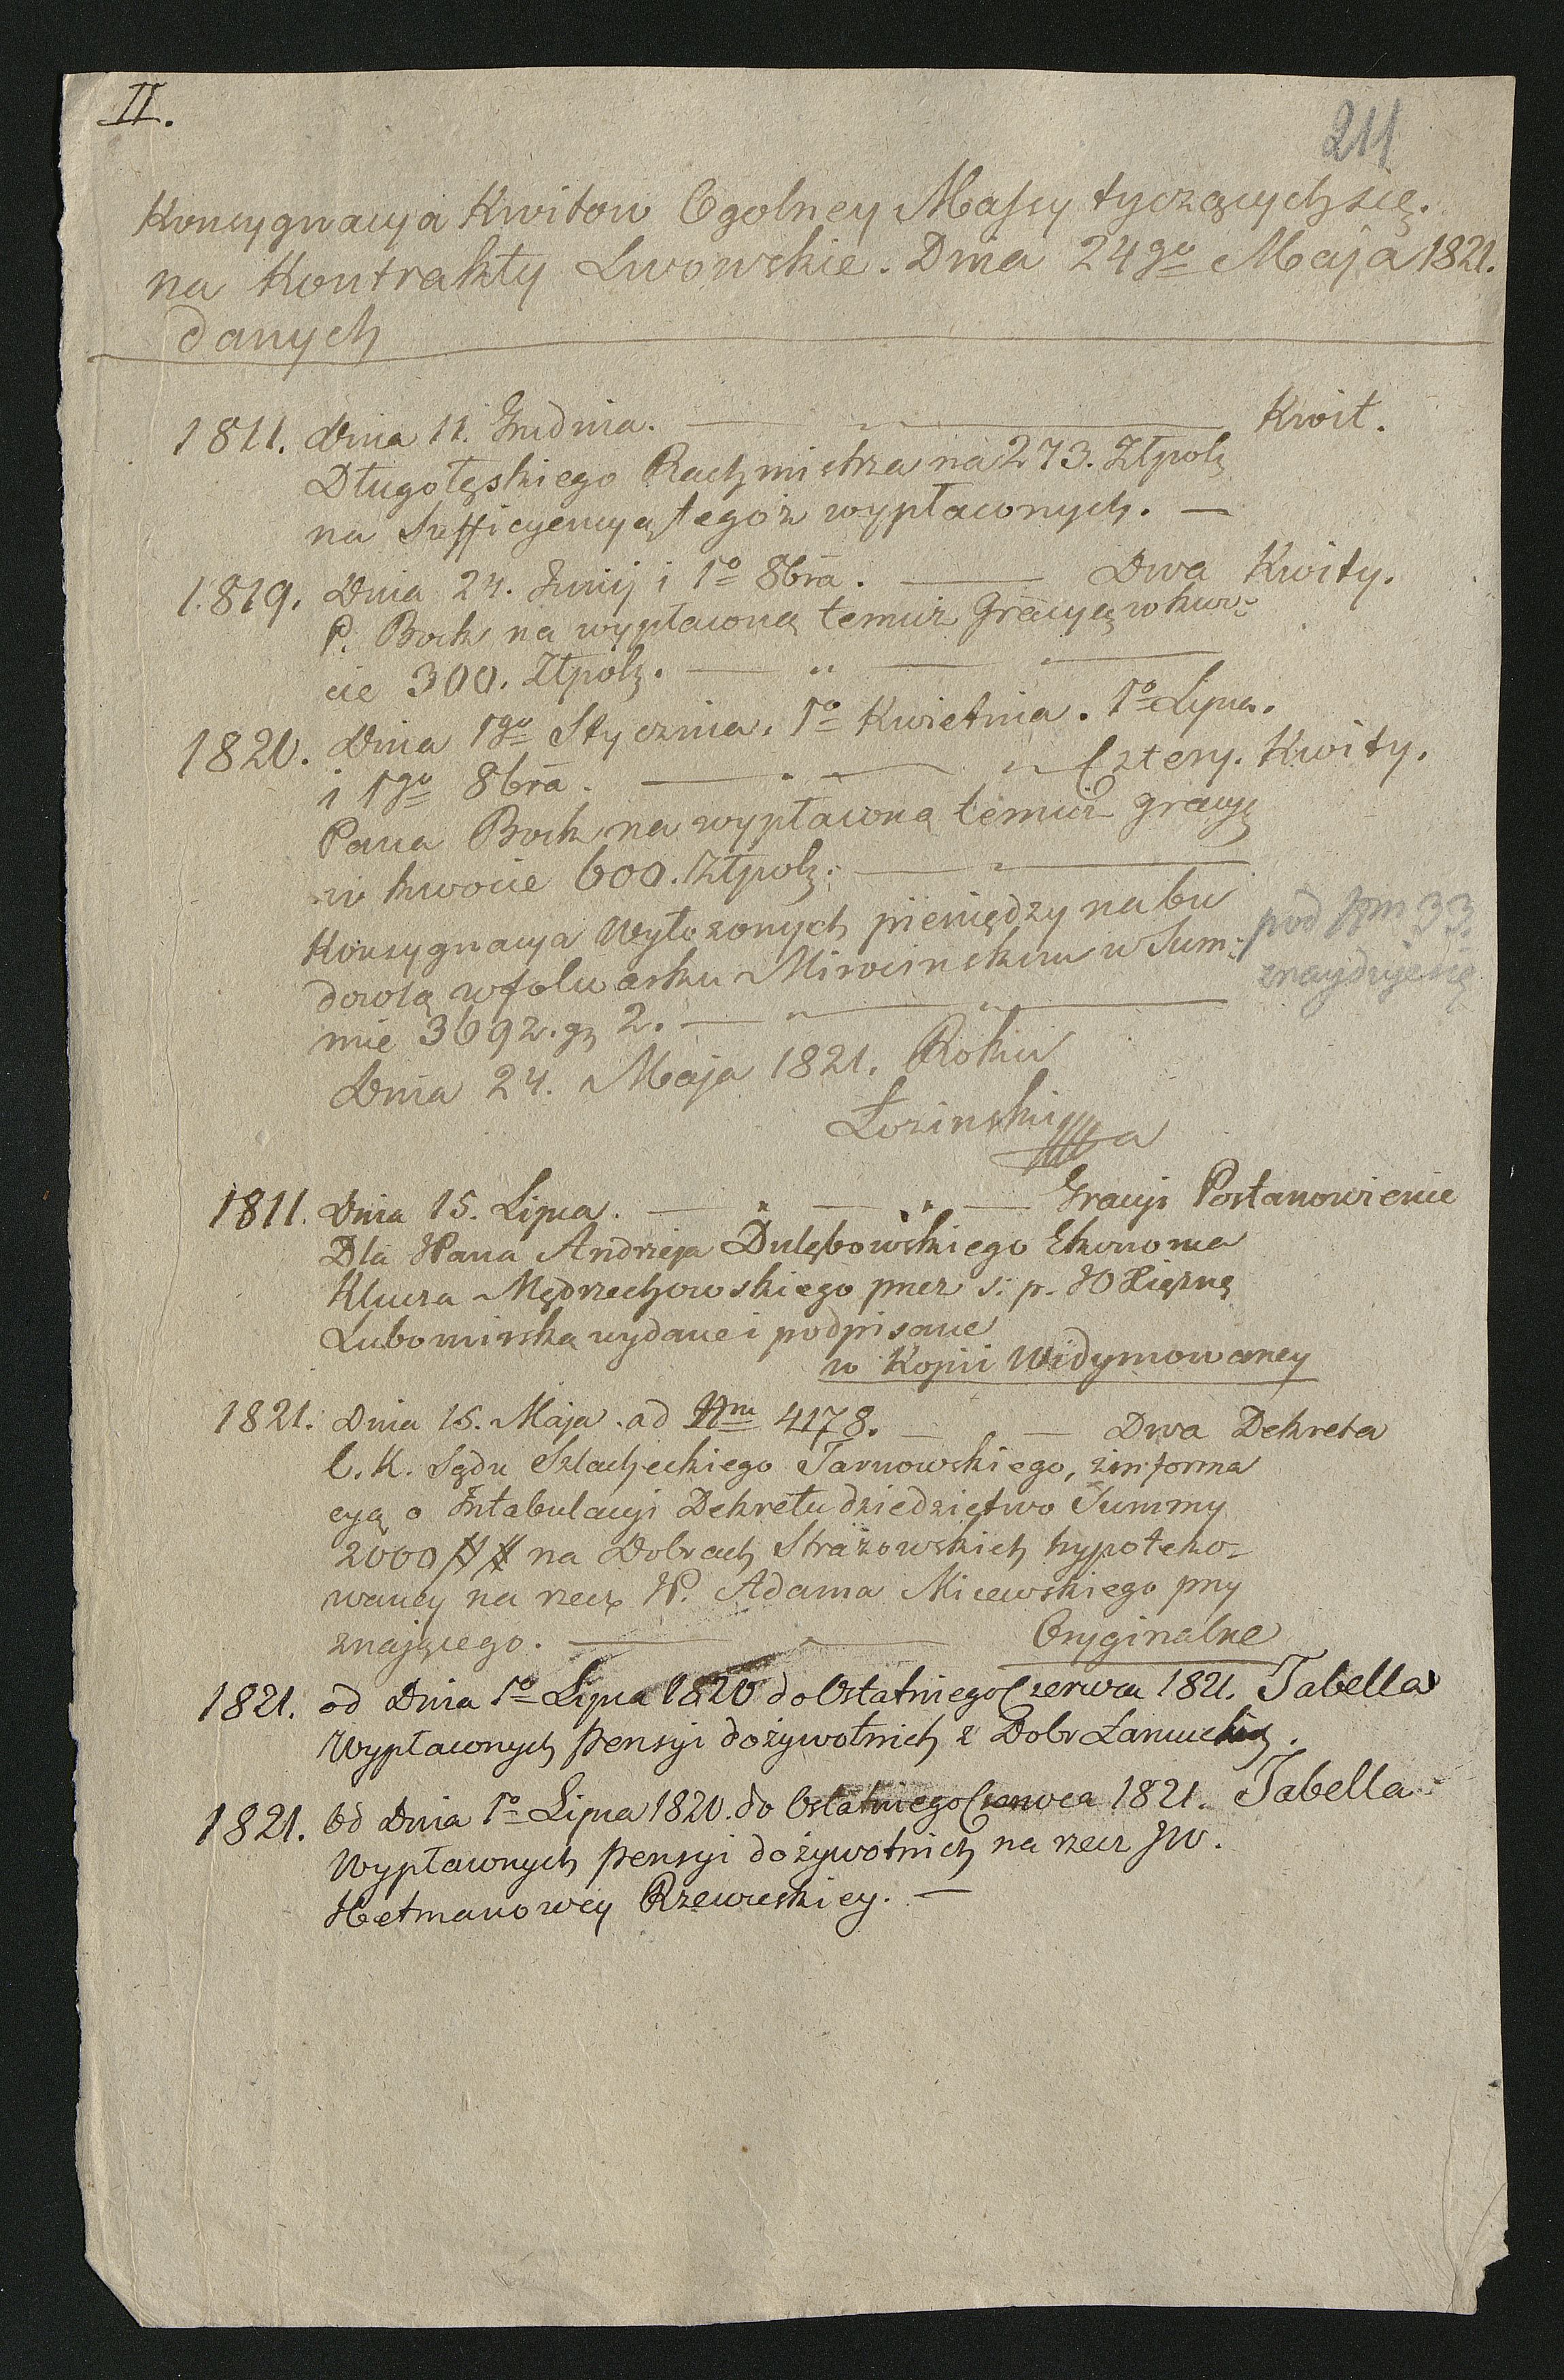 II.
211
Konsygnacya Kwitow Ogolney Massy tyczących się.
na Kontrakty Lwowskie. Dnia 24go Maja 1821.
danych
1811. Dnia 11. Grudnia. — „ — Kwit.
Długołęskiego Rachmistrza na 273. Złpolz
na Sufficyencyą tegoż wypłaconych. —
1819. Dnia 24. Junij i 1o 8bra. — Dwa Kwity.
P. Bock na wypłaconą temuż Gracyą w kwo-
cie 300. Złpolz. — „ — —
1820. Dnia 1go Stycznia. 1o Kwietnia. 1o Lipca.
i 1go 8bra. — „ — „ Cztery. Kwity.
Pana Bock na wypłaconą temuż gracyę
w kwocie 600. Złpolz. — „ —
Konsygnacya Wyłożonych pieniędzy na bu
dowlą w folwarku Mirocinskim w Sum-
mie 3692. gr 2. — „ — „ —
pod Nm 33.
znayduje się
Dnia 24. Maja 1821. Roku
Łozinski
1811. Dnia 15. Lipca. — „ — „ — Gracyi Postanowienie
Dla WPana Andrzeja Dulębowskiego Ekonoma
Klucza Mędrzechowskiego przez s. p. JO Xiężnę
Lubomirską wydane i podpisane
w Kopii Widymowaney
1821. Dnia 15. Maja. ad Nm 4178. — — Dwa Dekreta
C. K. Sądu Szlacheckiego Tarnowskiego, z informa
cyą o Intabulacyi Dekretu dziedzictwo Summy
2000 ## na Dobrach Strażowskich hypoteko-
waney na rzecz W. Adama Micewskiego przy
znającego. — „ — Oryginalne
1821. od Dnia 1o Lipca 1820 do Ostatniego Czerwca 1821. Tabella
Wypłaconych pensyi dożywotnich z Dobr Łancuckich.
1821. Od Dnia 1o Lipca 1820. do Ostatniego Czerwca 1821. Tabella
Wypłaconych pensyi dożywotnich na rzecz JW.
Hetmanowey Rzewuskiey. —